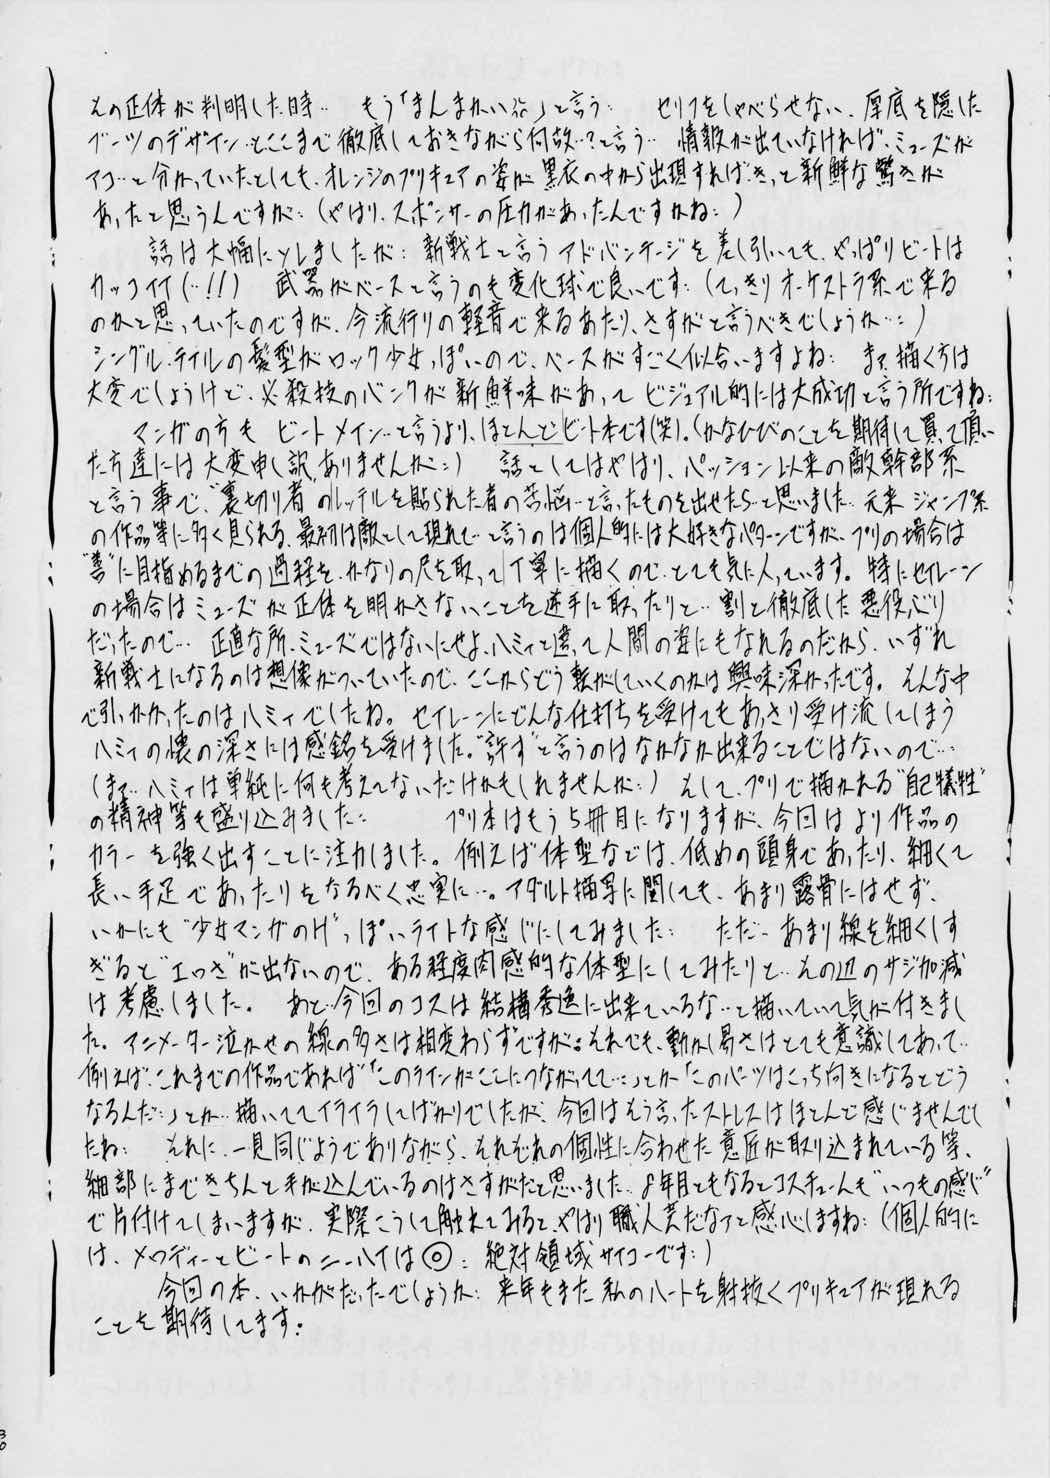 その正体が判明した時… もう「まんまかい」と言う… セリフをしゃべらせない、厚底を隠した
ブーツのデザイン…とここまで徹底しておきながら何故…?と言う… 情報が出ていなければ、ミューズが
アコ…と分かっていたとしても、オレンジのプリキュアの姿が黒衣の中から出現すれば、きっと新鮮な驚きが
あったと思うんですが…(やはり、スポンサーの圧力があったんですかね…)
話は大幅にソレましたが…新戦士と言うアドバンテージを差し引いても、やっぱりビートは
カッコイイ(…!!) 武器がベースと言うのも変化球で良いです…(てっきりオーケストラ系で来る
のかと思っていたのですが、今流行りの軽音で来るあたり、さすがと言うべきでしょうか…)
シングル・テイルの髪型がロック少女っぽいので、ベースがすごく似合いますよね… まァ描く方は
大変でしょうけど、必殺技のバンクが新鮮味があってビジュアル的には大成功と言う所ですね…
マンガの方も ビートメイン…と言うより、ほとんどビート本です(笑)。(かなひびのことを期待して買って頂い
た方達には大変申し訳ありませんが…) 話としてはやはり、パッション以来の敵幹部系
と言う事で、“裏切り者”のレッテルを貼られた者の苦悩…と言ったものを出せたら…と思いました… 元来ジャンプ系
の作品等に多く見られる、最初は敵として現れて…と言うのは個人的には大好きなパターンですが、プリの場合は
“善”に目指めるまでの過程を、かなりの尺を取って丁寧に描くので、とても気に入っています。特にセイレーン
の場合はミューズが正体を明かさないことを逆手に取ったりと…割と徹底した悪役ぶり
だったので… 正直な所、ミューズではないにせよ、ハミィと違って人間の姿にもなれるのだから、いずれ
新戦士になるのは想像がついていたので、ここからどう転がしていくのかは興味深かったです。そんな中
で引っかかったのはハミィでしたね。セイレーンにどんな仕打ちを受けてもあっさり受け流してしまう
ハミィの懐の深さには感銘を受けました。“許す”と言うのはなかなか出来ることではないので…
(まァ…ハミィは単純に何も考えてないだけかもしれませんが…) そして、プリで描かれる“自己犠牲”
の精神等も盛り込みました… プリ本はもう5冊目になりますが、今回はより作品の
カラーを強く出すことに注力しました。例えば体型などは、低めの頭身であったり、細くて
長い手足であったりをなるべく忠実に…。アダルト描写に関しても、あまり露骨にはせず、
いかにも“少女マンガのH”っぽいライトな感じにしてみました… ただ…あまり線を細くしす
ぎると“エロさ”が出ないので、ある程度肉感的な体型にしてみたりと…その辺のサジ加減
は考慮しました。 あと…今回のコスは結構秀逸に出来ているな…と描いていて気が付きまし
た。アニメーター泣かせの線の多さは相変わらずですが…それでも、動かし易さはとても意識してあって…
例えば、これまでの作品であれば「このラインがここにつながってて…」とか「このパーツはこっち向きになるとどう
なるんだ…」とか…描いててイライラしてばかりでしたが、今回はそう言ったストレスはほとんど感じませんでし
たね… それに、一見同じようでありながら、それぞれの個性に合わせた意匠が取り込まれている等、
細部にまできちんと手が込んでいるのはさすがだと思いました… 8年目ともなるとコスチュームも“いつもの感じ”
で片付けてしまいますが、実際こうして触れてみると、やはり職人芸だなァと感心しますね…(個人的に
は、メロディーとビートのニーハイは◎…絶対領域サイコーです…)
今回の本、いかがだったでしょうか… 来年もまた私のハートを射抜くプリキュアが現れる
ことを期待してます…
30